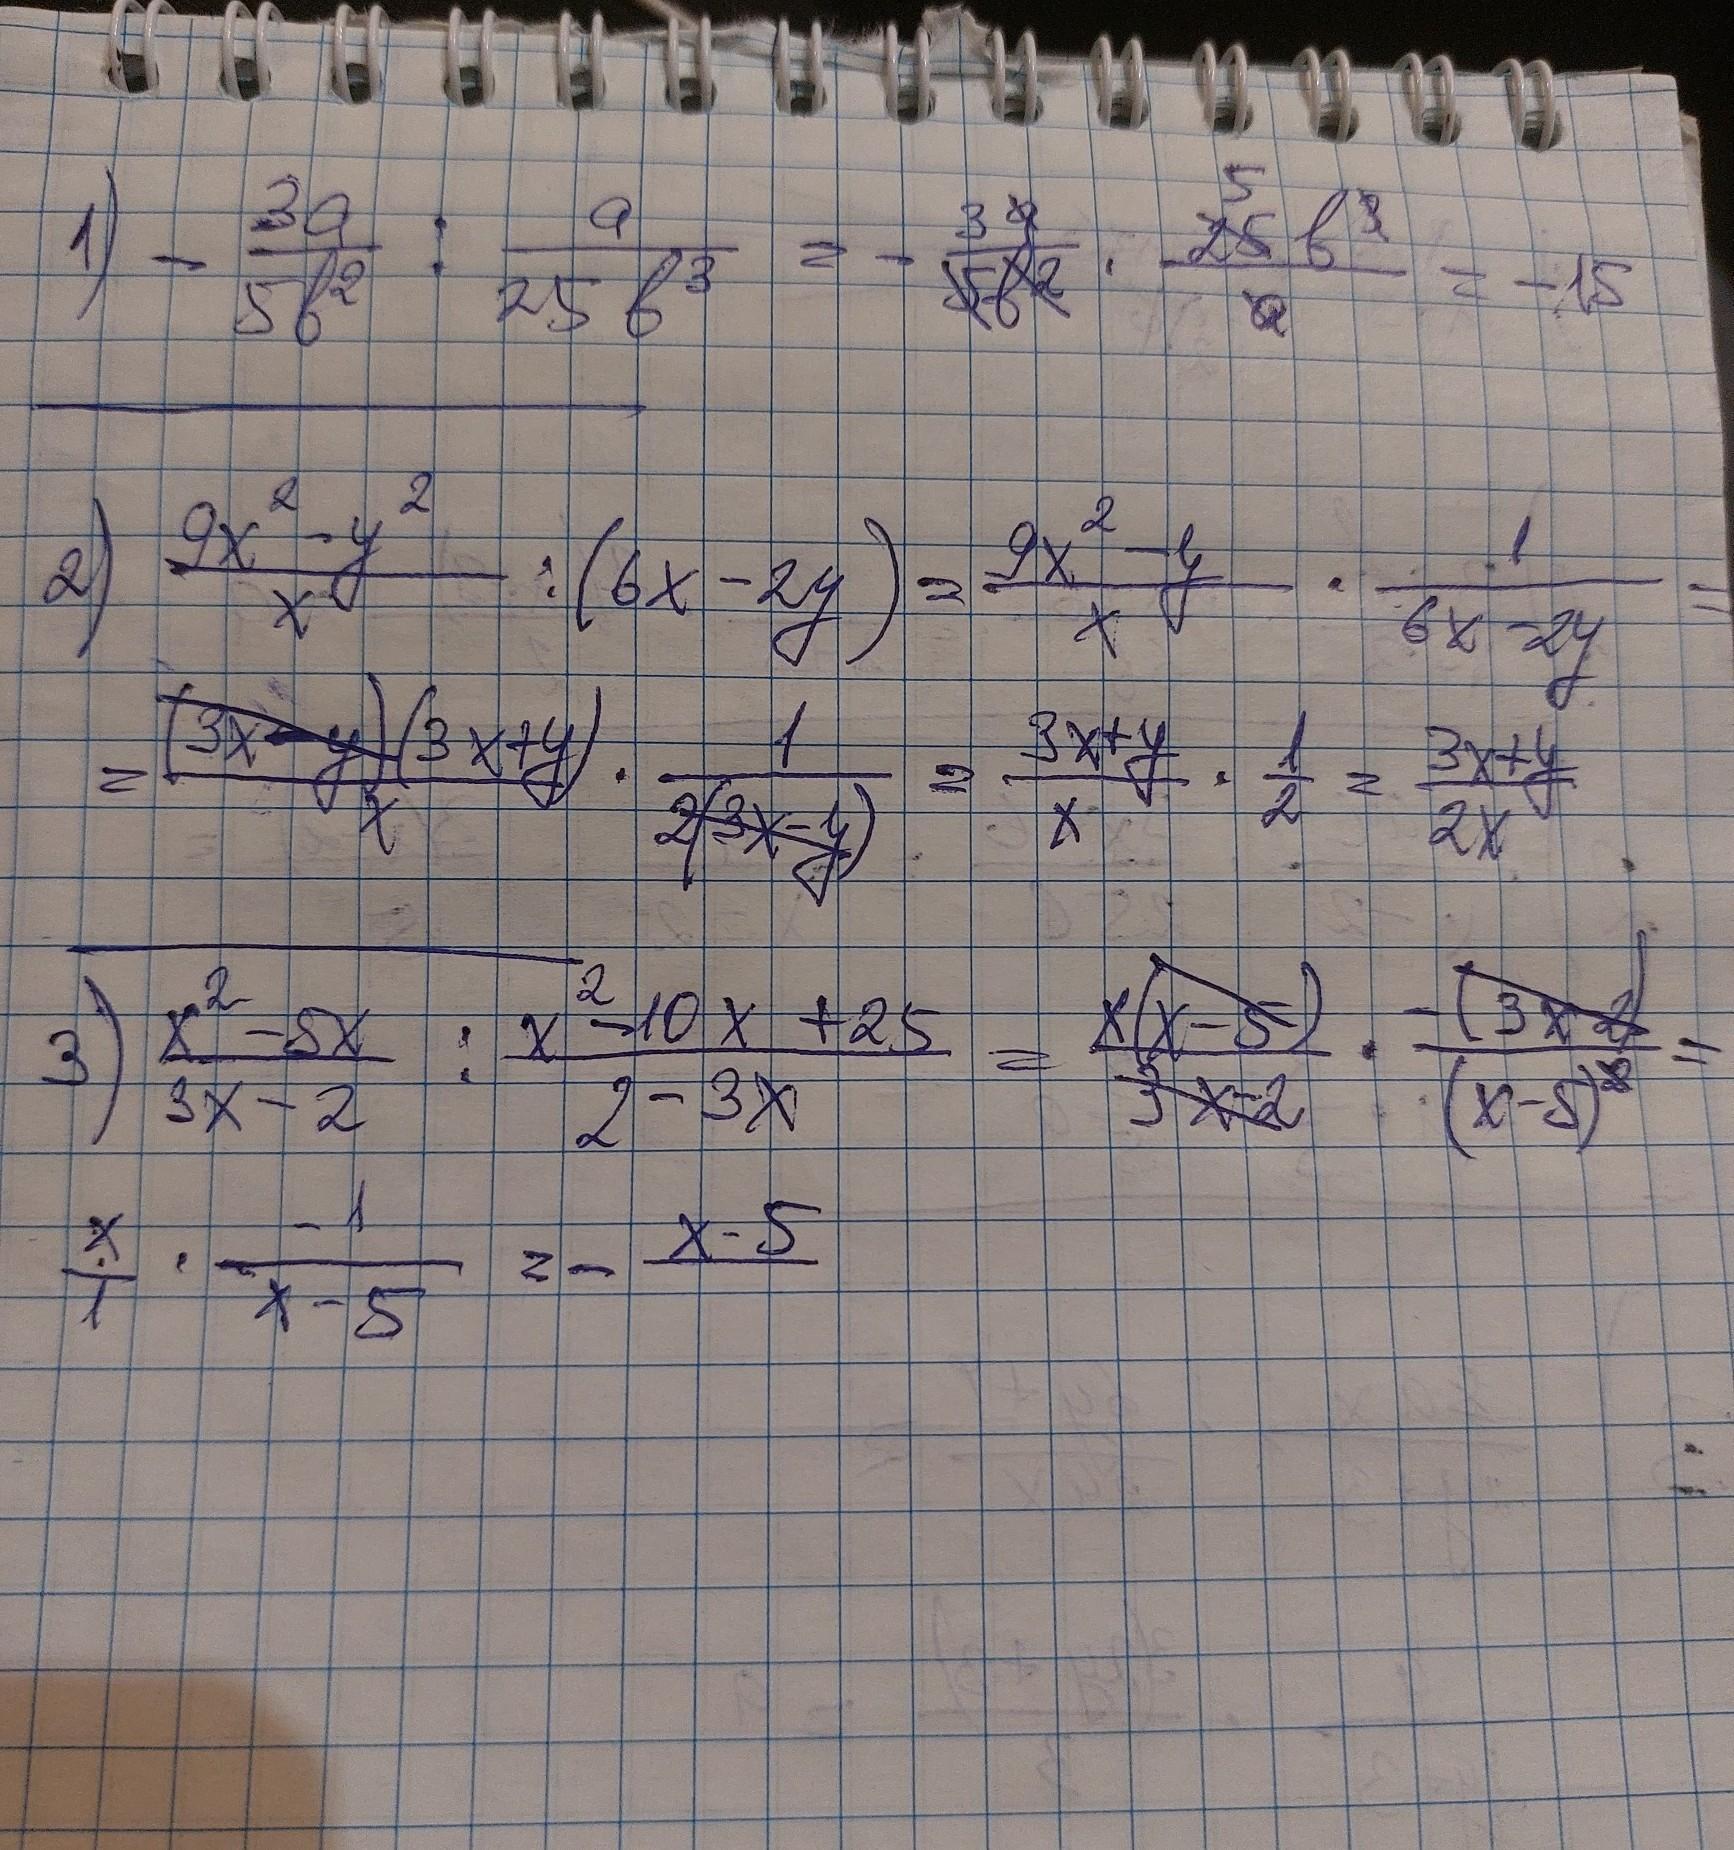 1) - 3a/5b² : a/25b³ = - 3a/5b² · 25b³/a = -15
5
2) (9x² - y²)/x : (6x - 2y) = (9x² - y)/x · 1/(6x - 2y) =
= (3x - y)(3x + y)/x · 1/2(3x - y) = (3x + y)/x · 1/2 = (3x + y)/2x
3) (x² - 5x)/(3x - 2) : (x² - 10x + 25)/(2 - 3x) = x(x - 5)/(3x - 2) · -(3x - 2)/(x - 5)² =
x/1 · -1/(x - 5) = - x - 5/